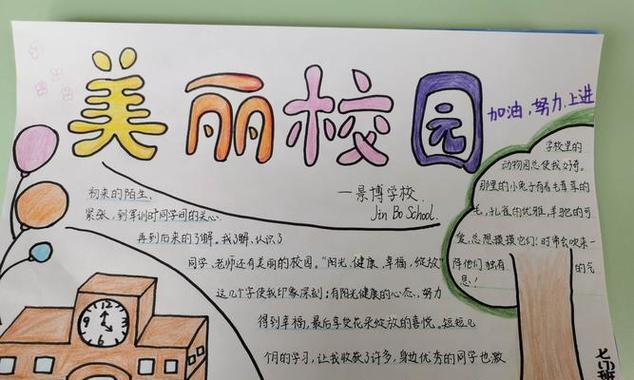 美丽校园
加油,努力,上进
—景博学校
Jin Bo School.
初来的陌生、
紧张,到军训时同学间的关心.
再到后来的了解。我了解、认识了
同学、老师还有美丽的校园。"阳光,健康,幸福,绽放"
这几个字使我印象深刻:有阳光健康的心态,努力
得到幸福,最后享受花朵绽放的喜悦。短短几
个月的学习,让我收获了许多,身边优秀的同学也激
学校里的
动物园总使我好奇。
那里的小兔子有着毛茸茸的
毛,孔雀的优雅,羊驼的可
爱,总想摸摸它们!时常会吹来一
阵他们独有的气
息!